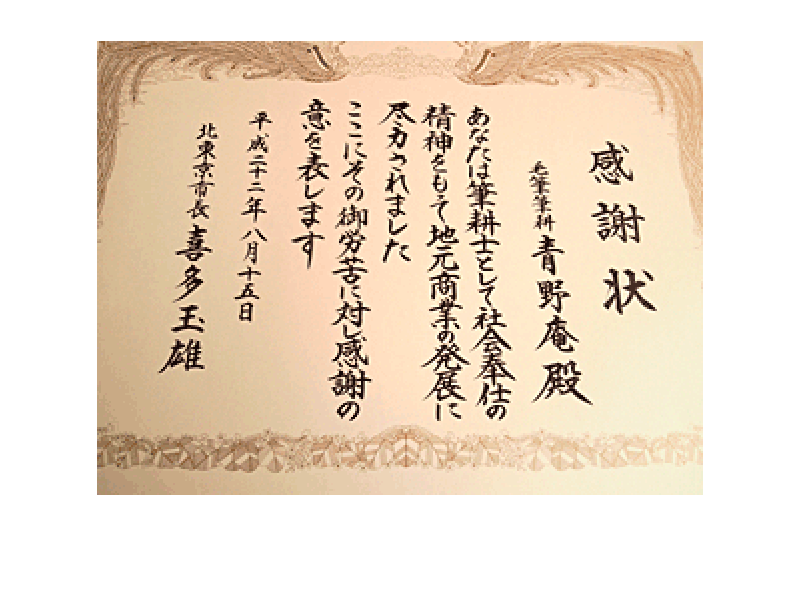 感謝状
毛筆筆耕 青野庵殿
あなたは筆耕士として社会奉仕の
精神をもって地元商業の発展に
尽力されました
ここにその御労苦に対し感謝の
意を表します
平成二十二年八月十五日
北東京市長 喜多玉雄